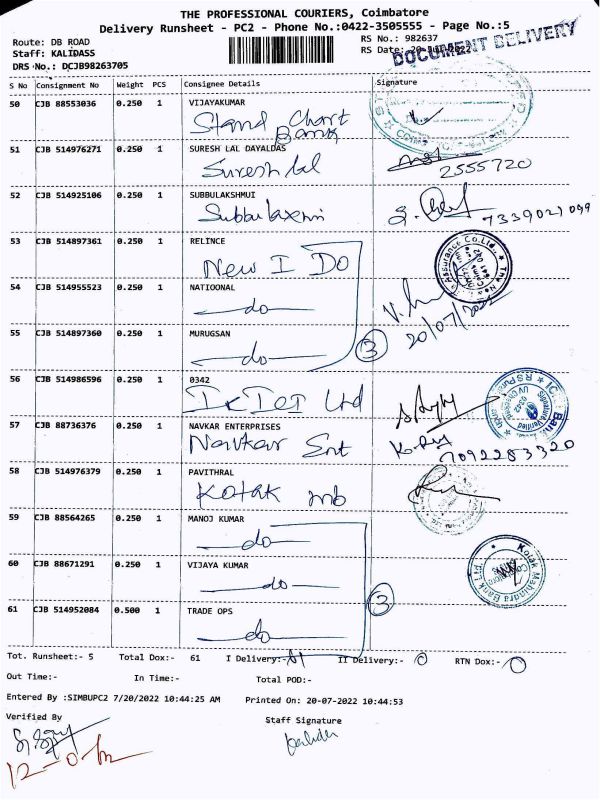 THE PROFESSIONAL COURIERS, Coimbatore
Delivery Runsheet - PC2 - Phone No.:0422-3505555 - Page No.:5
Route: DB ROAD RS No.: 982637
Staff: KALIDASS RS Date: 20-Jul-2022
DOCUMENT DELIVERY
DRS No.: DCJB98263705
S No Consignment No Weight PCS Consignee Details Signature
50 CJB 88553036 0.250 1 VIJAYAKUMAR
Stand Chart
Bank
51 CJB 514976271 0.250 1 SURESH LAL DAYALDAS
Suresh lal 2555720
52 CJB 514925106 0.250 1 SUBBULAKSHMUI
Subbulaxmi 7339021099
53 CJB 514897361 0.250 1 RELINCE
New I Do
Assurance Co. Ltd.,
54 CJB 514955523 0.250 1 NATIOONAL
do
20/07/2022
55 CJB 514897360 0.250 1 MURUGSAN
do 3
56 CJB 514986596 0.250 1 0342
Ltd
Signature Verified
0342
57 CJB 88736376 0.250 1 NAVKAR ENTERPRISES
Navkar Ent 7092283320
58 CJB 514976379 0.250 1 PAVITHRAL
Kotak mb
59 CJB 88564265 0.250 1 MANOJ KUMAR
do
60 CJB 88671291 0.250 1 VIJAYA KUMAR
do 3
Kotak Mahindra Bank
61 CJB 514952084 0.500 1 TRADE OPS
do
Tot. Runsheet:- 5 Total Dox:- 61 I Delivery:- II Delivery:- 0 RTN Dox:- 0
Out Time:- In Time:- Total POD:-
Entered By :SIMBUPC2 7/20/2022 10:44:25 AM Printed On: 20-07-2022 10:44:53
Verified By Staff Signature